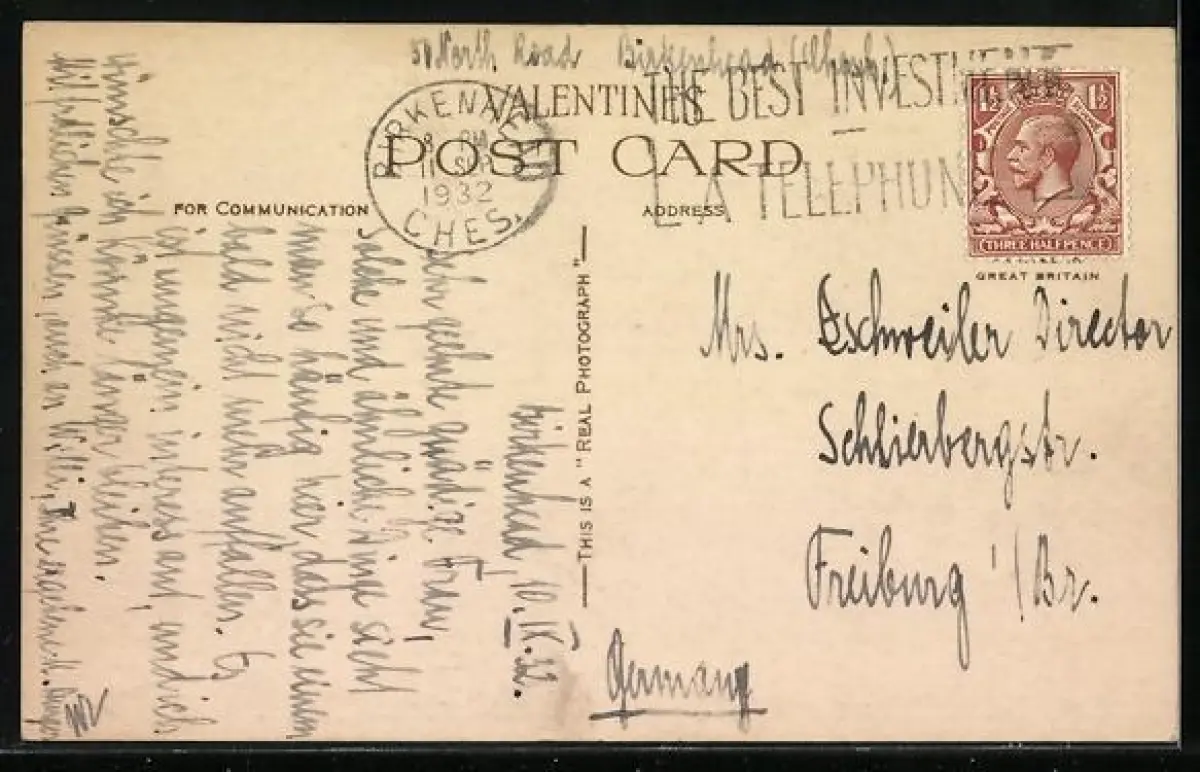 50 North Road Birkenhead
VALENTINE'S
POST CARD
BIRKENHEAD
8 PM
11 SEP
1932
CHES.
THE BEST INVESTMENT
A TELEPHONE
1½ 1½
THREE HALFPENCE
GREAT BRITAIN
FOR COMMUNICATION
ADDRESS
THIS IS A "REAL PHOTOGRAPH"
Birkenhead, 10.IX.32.
Sehr geehrte gnädige Frau,
Solche und ähnliche Dinge sieht
man so häufig hier, dass sie einem
bald nicht mehr auffallen. Es
ist ungemein interessant, und ich
wünschte ich könnte länger bleiben.
Mit herzlichen Grüssen, auch an Willi, Ihr
Mrs. Eschweiler Director
Schlierbergstr.
Freiburg i/Br.
Germany